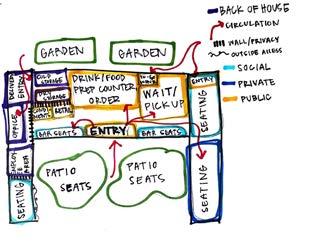 BACK OF HOUSE
CIRCULATION
WALL/PRIVACY
OUTSIDE ACCESS
SOCIAL
PRIVATE
PUBLIC
GARDEN
GARDEN
DELIVERY
ENTRY
COLD
STORAGE
DRY
STORAGE
RETAIL
DRINK/FOOD
PREP COUNTER,
ORDER
WAIT/
PICKUP
ENTRY
SEATING
OFFICE
BAR SEATS
ENTRY
BAR SEATS
AREA
SEATING
PATIO
SEATS
PATIO
SEATS
SEATING